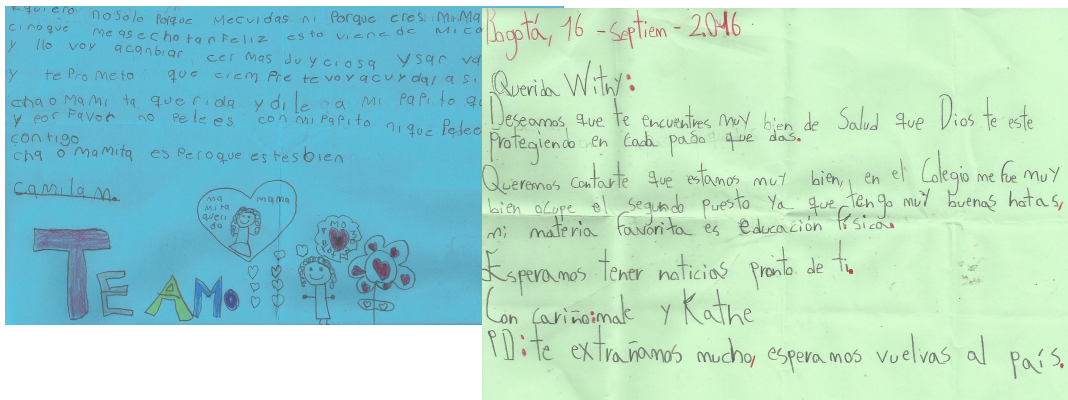 quiero no solo porque mecuidas ni porque eres mi MaMa
cinoque measechotanfeliz esto viene de mico
y llo voy acanbiar cer mas juyciosa y sar va
y tePrometo que ciem Pre tevoyacuydar a si
chao Mami ta querida y dile a mi papito qu
y porfavor no pelees con mi papito ni que Pelee
contigo
cha o mamita es Peroque estesbien
camila M.
Ma mi ta queri da
mama
TE AMo
Bogotá, 16 - Septiem - 2016
Querida Witny:
Deseamos que te encuentres muy bien de Salud que Dios te este
Protegiendo en cada paso que das.
Queremos contarte que estamos muy bien, en el Colegio me fue muy
bien ocupe el segundo puesto ya que tengo muy buenas notas,
mi materia favorita es educación fisica.
Esperamos tener noticias pronto de ti.
Con cariño: male y Kathe
PD: te extrañamos mucho, esperamos vuelvas al país.